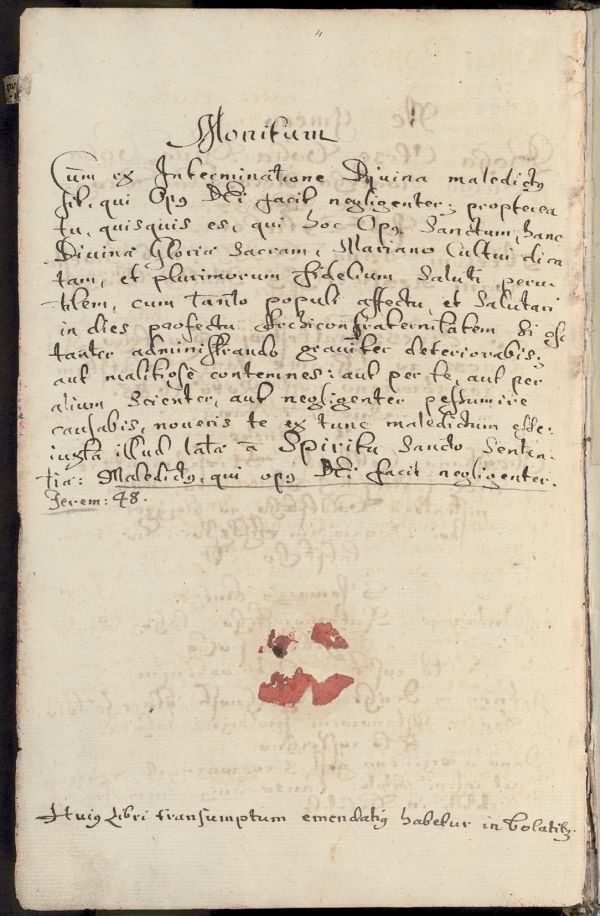 4
Monitum
Cum ex Interminatione Divina maledictus
sit, qui Opus Dei facit negligenter; propterea
tu, quisquis es, qui hoc Opus Sanctum, hanc
Divinæ Gloriæ Sacram, Mariano Cultui dica
tam, et plurimorum fidelium Saluti peru-
tilem, cum tanto populi affectu, et Salutari
in dies profectu Archiconfraternitatem Si osc
tanter administrando graviter deteriorabis;
aut malitiosè contemnes: aut per te, aut per
alium Scienter, aut negligenter pessum ire
causabis, noveris te ex tunc maledictum esse:
iuxta illud lata à Spiritu Sancto Senten-
tia: Maledictus, qui opus Dei facit negligenter.
Jerem: 48.
Huius Libri transumptum emendatius habetur in